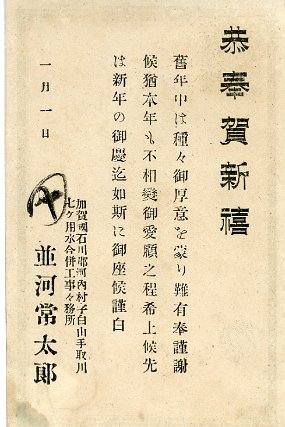 恭奉賀新禧
舊年中は種々御厚意を蒙り難有奉謹謝
候猶本年も不相變御愛顧之程希上候先
は新年の御慶迄如斯に御座候謹白
一月一日
加賀國石川郡河内村字白山手取川
七ヶ用水合併工事々務所
並河常太郎